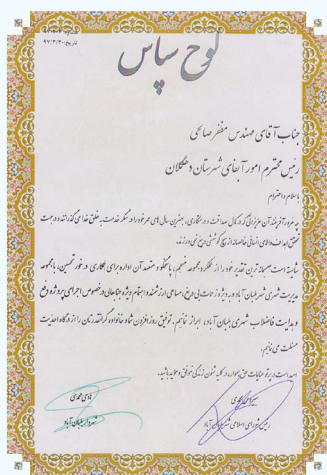 تاریخ: ۹۷/۳/۲۰
لوح سپاس
جناب آقای مهندس مظفر صالحی
رئیس محترم امور آبفای شهرستان دهگلان
با سلام و احترام
چه غرور آفرینند آن عزیزانی که در کمال صداقت و درستکاری، بهترین سال های عمر خود را در سنگر خدمت به خلق خدا می گذرانند و در جهت
تحقق اهداف والای انسانی خالصانه از هیچ کوششی دریغ نمی ورزند.
شایسته است صمیمانه ترین تقدیر خود را از عملکرد مجموعه منسجم، پاسخگو و متعهد آن اداره برای همکاری در خور تحسین، با مجموعه
مدیریت شهری شهر بلبان آباد و به ویژه زحمات بی دریغ، مساعی ارزشمند و اهتمام ویژه جنابعالی در خصوص اجرای پروژه دفع
و هدایت فاضلاب شهری بلبان آباد، ابراز نمائیم، توفیق روز افزون شما و خانواده گرانقدرتان را از درگاه احدیت
مسئلت می نمائیم.
امید است در پرتو عنایات حق همواره در کلیه شئون زندگی موفق و مؤید باشید.
هادی محمدی
شهردار بلبان آباد
رئیس شورای اسلامی شهر بلبان آباد